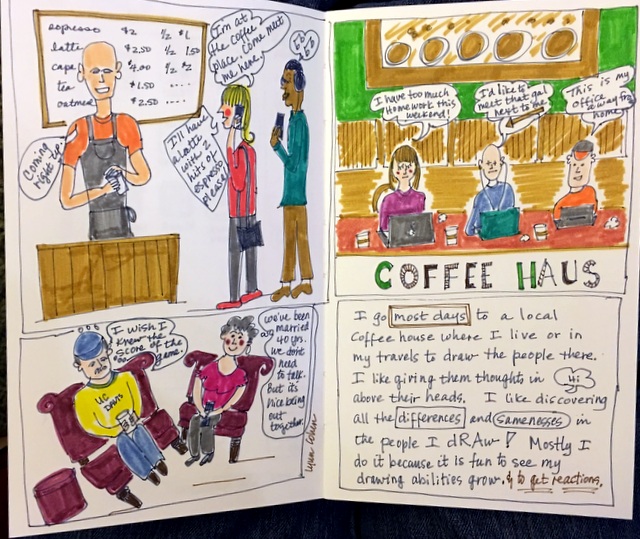 espresso $2 1/2 $1
latte $2.50 1/2 1.50
capp $4.00 1/2 $2
tea $1.50 ....
oatmeal $2.50 ....
Coming
right up.
I'm at
the coffee
place. Come meet
me here.
I'll have
a
with 2
hits of
espresso
please.
I wish I
knew the
score of the
game.
UC
DAVIS
we've been
married
40 yrs.
we don't
need
to talk.
But it's
nice being
out
together.
lynn cohen
I have too much
Homework this
weekend!
I'd like to
meet that gal
next to me.
This is my
office
away from
home.
COFFEE HAUS
I go most days to a local
Coffee house where I live or in
my travels to draw the people there.
I like giving them thoughts in Hi
above their heads. I like discovering
all the differences and samenesses in
the people I dRAw! Mostly I
do it because it is fun to see my
drawing abilities grow. & to get reactions.